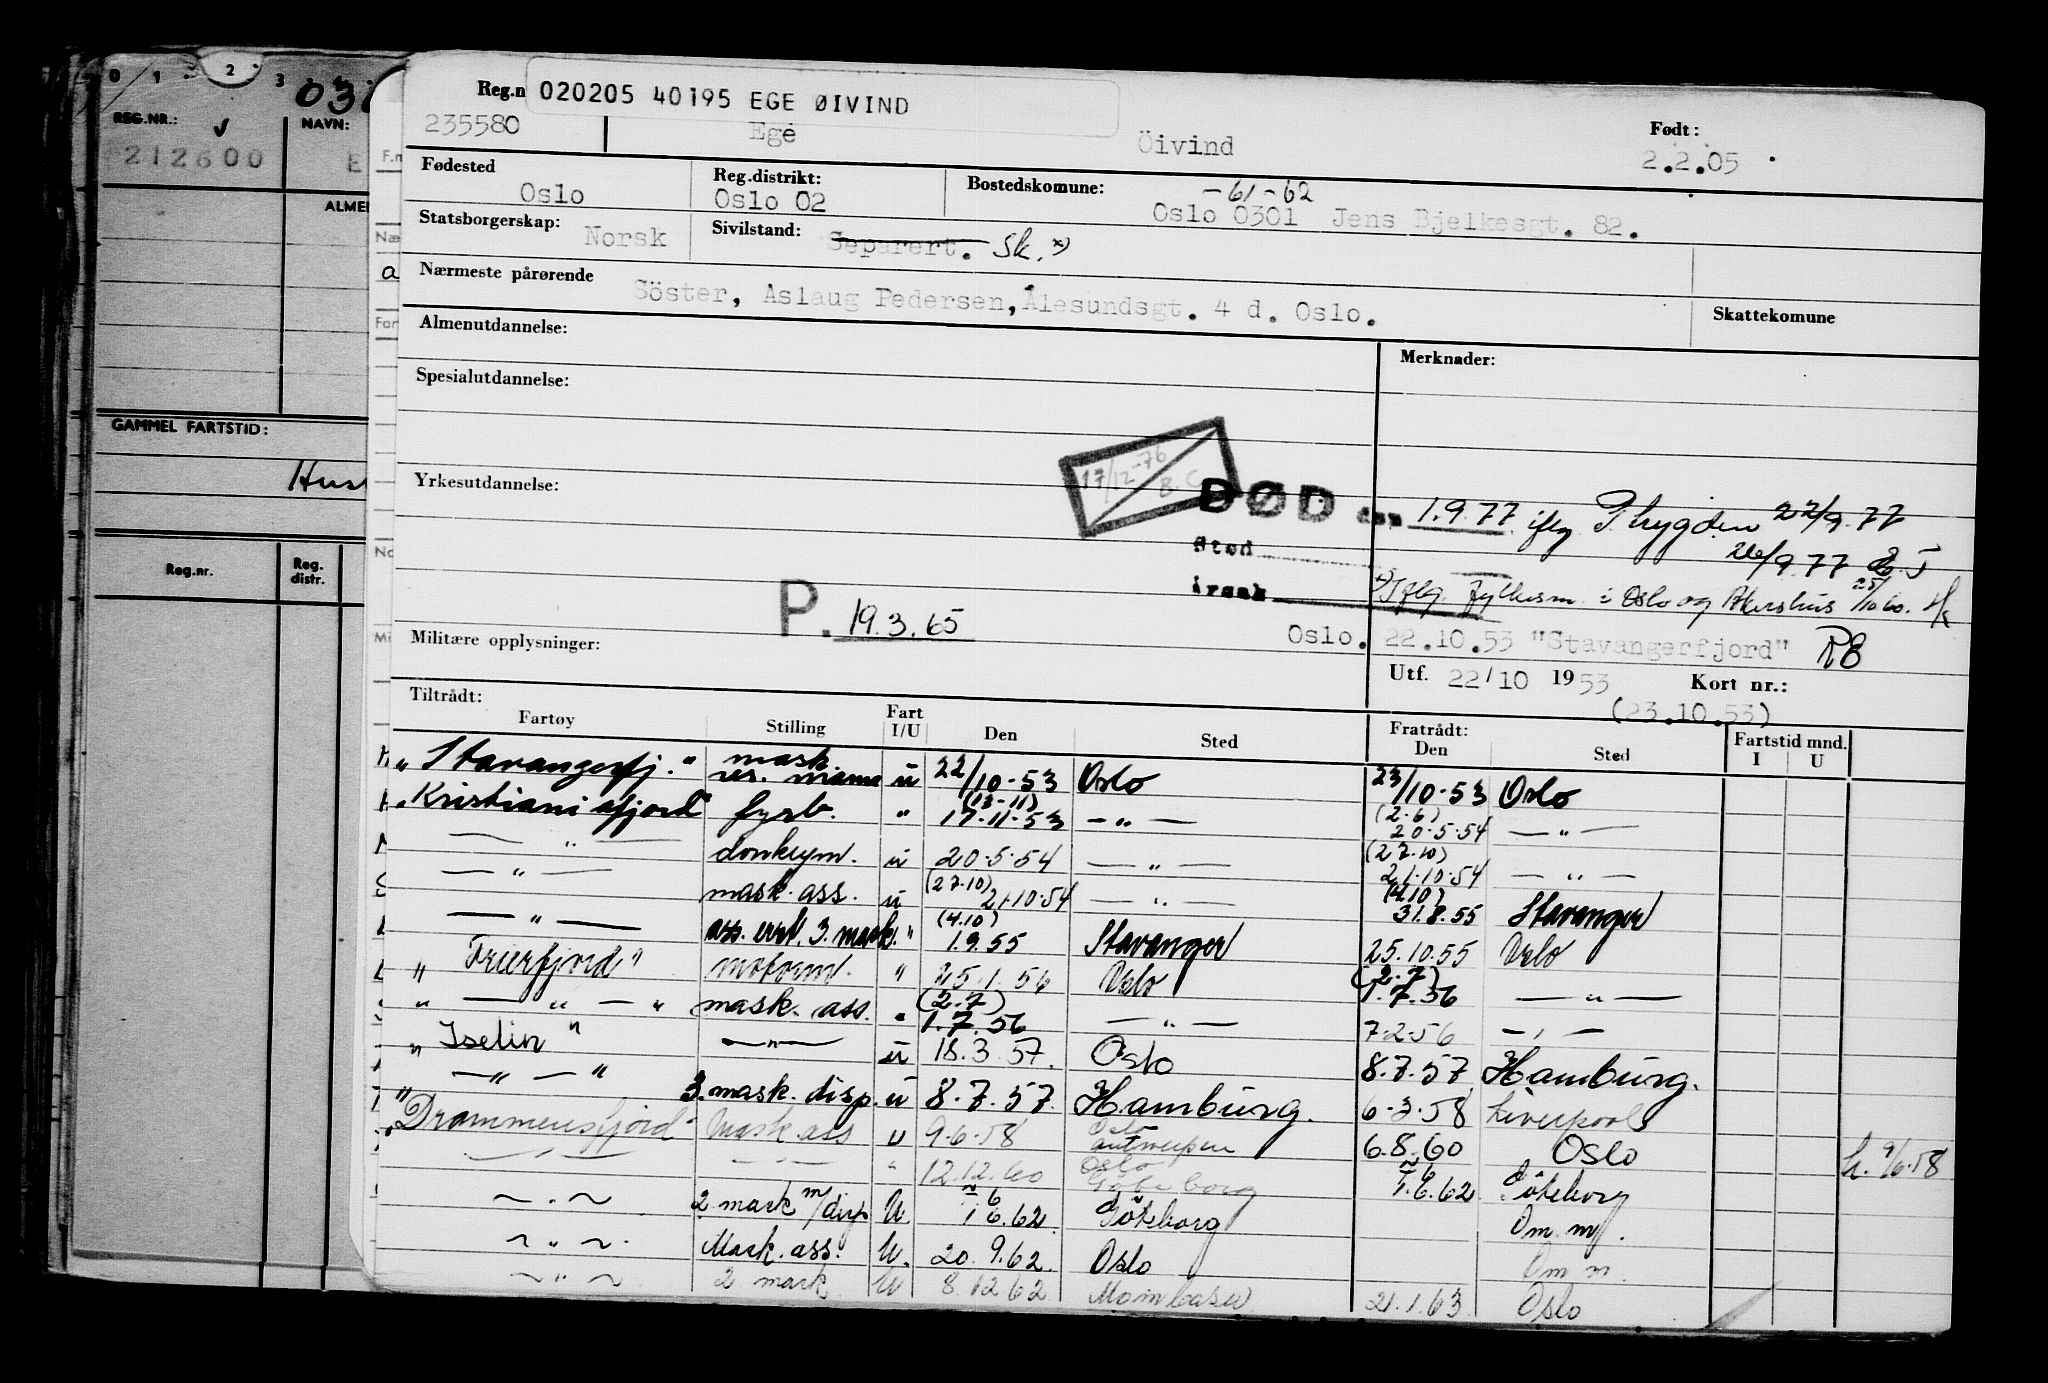 0 1 2 3
REG.NR.: NAVN:
212600 E
ALME
GAMMEL FARTSTID:
Reg.nr. Reg. distr.
Reg.n 020205 40195 EGE ØIVIND
235580 Ege Öivind Født: 2.2.05
Fødested Oslo Reg.distrikt: Oslo 02 Bostedskomune: -61-62
Oslo 0301 Jens Bjelkesgt. 82.
Statsborgerskap: Norsk Sivilstand: Separert. Sk. x)
Nærmeste pårørende
Söster, Aslaug Pedersen, Ålesundsgt. 4 d. Oslo.
Skattekomune
Almenutdannelse: Merknader:
Spesialutdannelse:
17/12-76 B.C
Yrkesutdannelse:
DØD den 1.9.77 iflg P. trygden 22/9.77
Sted 26/9.77
årsak x) Iflg. fylkesm. i Oslo og Akershus 25/10 60. Hk
P. 19.3.65
Militære opplysninger: Oslo. 22.10.53 "Stavangerfjord" RE
Utf. 22/10 1953 Kort nr.:
(23.10.53)
Tiltrådt: Fratrådt: Fartstid mnd.
Fartøy Stilling Fart I/U Den Sted Den Sted I U
"Stavangerfj." mask. res. mann u 22/10-53 Oslo 23/10-53 Oslo
"Kristianiafjord" fyrb. " (13-11) 17.11.53 - " - (2.6) 20.5.54 - " -
- " - donkeym. u 20.5.54 - " - (27.10) 21.10.54 - " -
- " - mask. ass. u (27.10) 21.10.54 - " - (4.10) 31.8.55 Stavanger
- " - ass. vikt. 3. mask. " (4.10) 1.9.55 Stavanger 25.10.55 Oslo
"Frierfjord" motorm. " 25.1.56 Oslo (2.7) 1.7.56 - " -
" - " - " mask. ass. " (2.7) 1.7.56 - " - 7.2.56 - " -
"Iselin" - " - u 18.3.57. Oslo 8.7.57 Hamburg.
" - " - " 3. mask. disp. u 8.7.57. Hamburg. 6-3.58 Liverpool
"Drammensfjord" Mask ass u 9.6.58 Oslo Antwerpen 6.8.60 Oslo h. 9/6.58
- " - - " - " 12.12.60 Oslo Göteborg 1.6.62 Göteborg
- " - 2 mask m/disp U 1 6.62 Göteborg Om. m.
- " - Mask. ass. U. 20.9.62 Oslo Om m.
- " - 2 mask U 8.12 62 Mombasa 21.1.63 Oslo